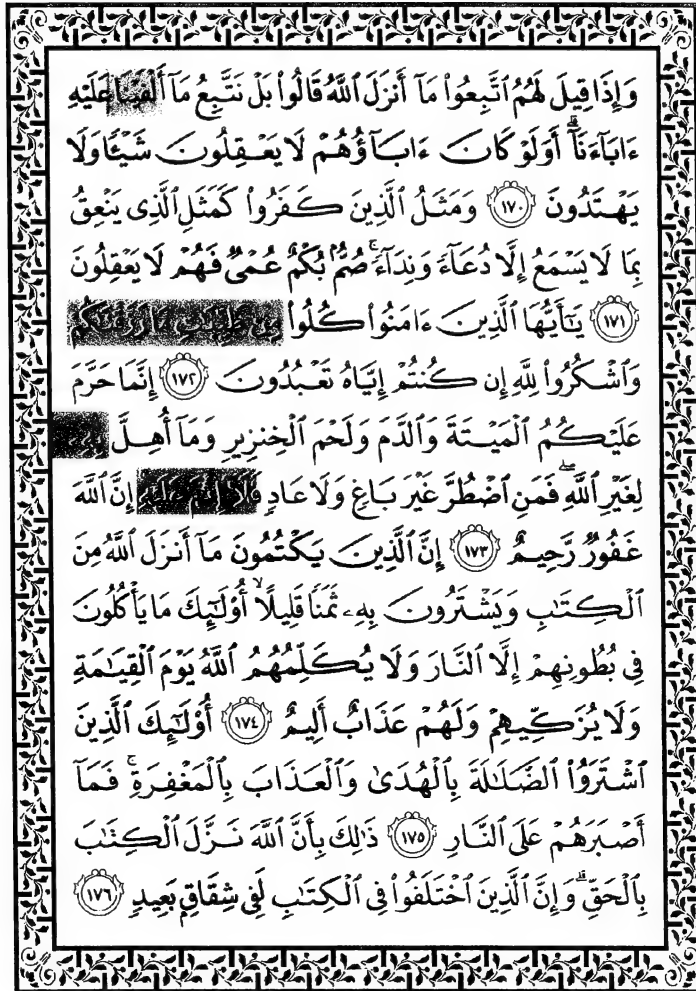 وَإِذَا قِيلَ لَهُمُ ٱتَّبِعُوا۟ مَآ أَنزَلَ ٱللَّهُ قَالُوا۟ بَلْ نَتَّبِعُ مَآ أَلْفَيْنَا عَلَيْهِ
ءَابَآءَنَآ ۗ أَوَلَوْ كَانَ ءَابَآؤُهُمْ لَا يَعْقِلُونَ شَيْـًٔا وَلَا
يَهْتَدُونَ ١٧٠ وَمَثَلُ ٱلَّذِينَ كَفَرُوا۟ كَمَثَلِ ٱلَّذِى يَنْعِقُ
بِمَا لَا يَسْمَعُ إِلَّا دُعَآءً وَنِدَآءً ۚ صُمٌّۢ بُكْمٌ عُمْىٌ فَهُمْ لَا يَعْقِلُونَ
١٧١ يَـٰٓأَيُّهَا ٱلَّذِينَ ءَامَنُوا۟ كُلُوا۟ مِن طَيِّبَـٰتِ مَا رَزَقْنَـٰكُمْ
وَٱشْكُرُوا۟ لِلَّهِ إِن كُنتُمْ إِيَّاهُ تَعْبُدُونَ ١٧٢ إِنَّمَا حَرَّمَ
عَلَيْكُمُ ٱلْمَيْتَةَ وَٱلدَّمَ وَلَحْمَ ٱلْخِنزِيرِ وَمَآ أُهِلَّ
لِغَيْرِ ٱللَّهِ ۖ فَمَنِ ٱضْطُرَّ غَيْرَ بَاغٍ وَلَا عَادٍ فَلَآ إِثْمَ عَلَيْهِ إِنَّ ٱللَّهَ
غَفُورٌ رَّحِيمٌ ١٧٣ إِنَّ ٱلَّذِينَ يَكْتُمُونَ مَآ أَنزَلَ ٱللَّهُ مِنَ
ٱلْكِتَـٰبِ وَيَشْتَرُونَ بِهِۦ ثَمَنًا قَلِيلًا ۙ أُو۟لَـٰٓئِكَ مَا يَأْكُلُونَ
فِى بُطُونِهِمْ إِلَّا ٱلنَّارَ وَلَا يُكَلِّمُهُمُ ٱللَّهُ يَوْمَ ٱلْقِيَـٰمَةِ
وَلَا يُزَكِّيهِمْ وَلَهُمْ عَذَابٌ أَلِيمٌ ١٧٤ أُو۟لَـٰٓئِكَ ٱلَّذِينَ
ٱشْتَرَوُا۟ ٱلضَّلَـٰلَةَ بِٱلْهُدَىٰ وَٱلْعَذَابَ بِٱلْمَغْفِرَةِ ۚ فَمَآ
أَصْبَرَهُمْ عَلَى ٱلنَّارِ ١٧٥ ذَٰلِكَ بِأَنَّ ٱللَّهَ نَزَّلَ ٱلْكِتَـٰبَ
بِٱلْحَقِّ ۗ وَإِنَّ ٱلَّذِينَ ٱخْتَلَفُوا۟ فِى ٱلْكِتَـٰبِ لَفِى شِقَاقٍۭ بَعِيدٍ ١٧٦